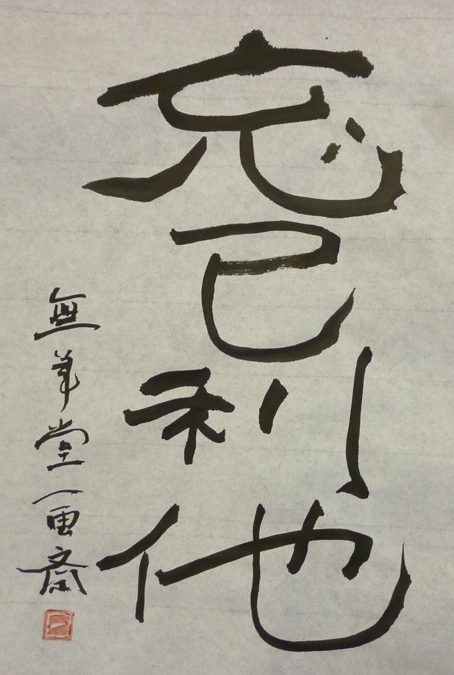 忘己利他
無羊堂一画斎